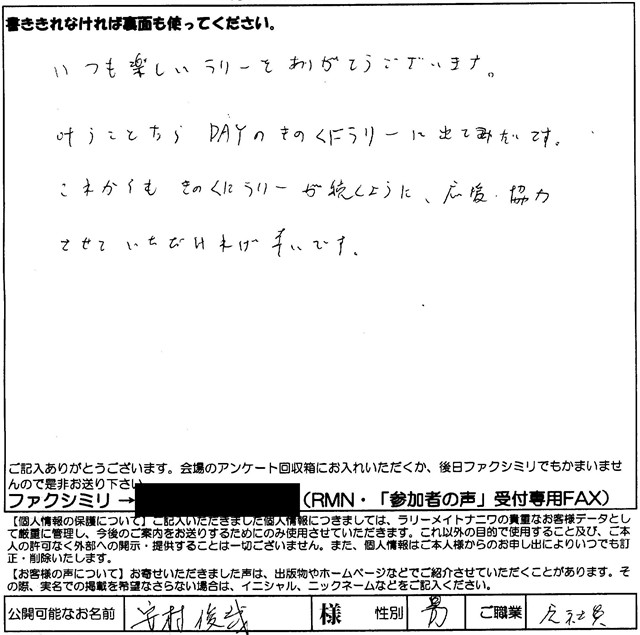 書ききれなければ裏面も使ってください。
いつも楽しいラリーをありがとうございます。
叶うことなら DAYのきのくにラリーに出てみたいです。
これからも きのくにラリーが続くように、応援・協力
させていただければ幸いです。
ご記入ありがとうございます。会場のアンケート回収箱にお入れいただくか、後日ファクシミリでもかまいませ
んので是非お送り下さい
ファクシミリ→ (RMN・「参加者の声」受付専用FAX)
【個人情報の保護について】ご記入いただきました個人情報につきましては、ラリーメイトナニワの貴重なお客様データとし
て厳重に管理し、今後のご案内をお送りするためにのみ使用させていただきます。これ以外の目的で使用すること及び、ご本
人の許可なく外部への開示・提供することは一切ございません。また、個人情報はご本人様からのお申し出によりいつでも訂
正・削除いたします。
【お客様の声について】お寄せいただきました声は、出版物やホームページなどでご紹介させていただくことがあります。そ
の際、実名での掲載を希望なさらない場合は、イニシャル、ニックネームなどをご記入ください。
公開可能なお名前 安村俊哉 様 性別 男 ご職業 会社員